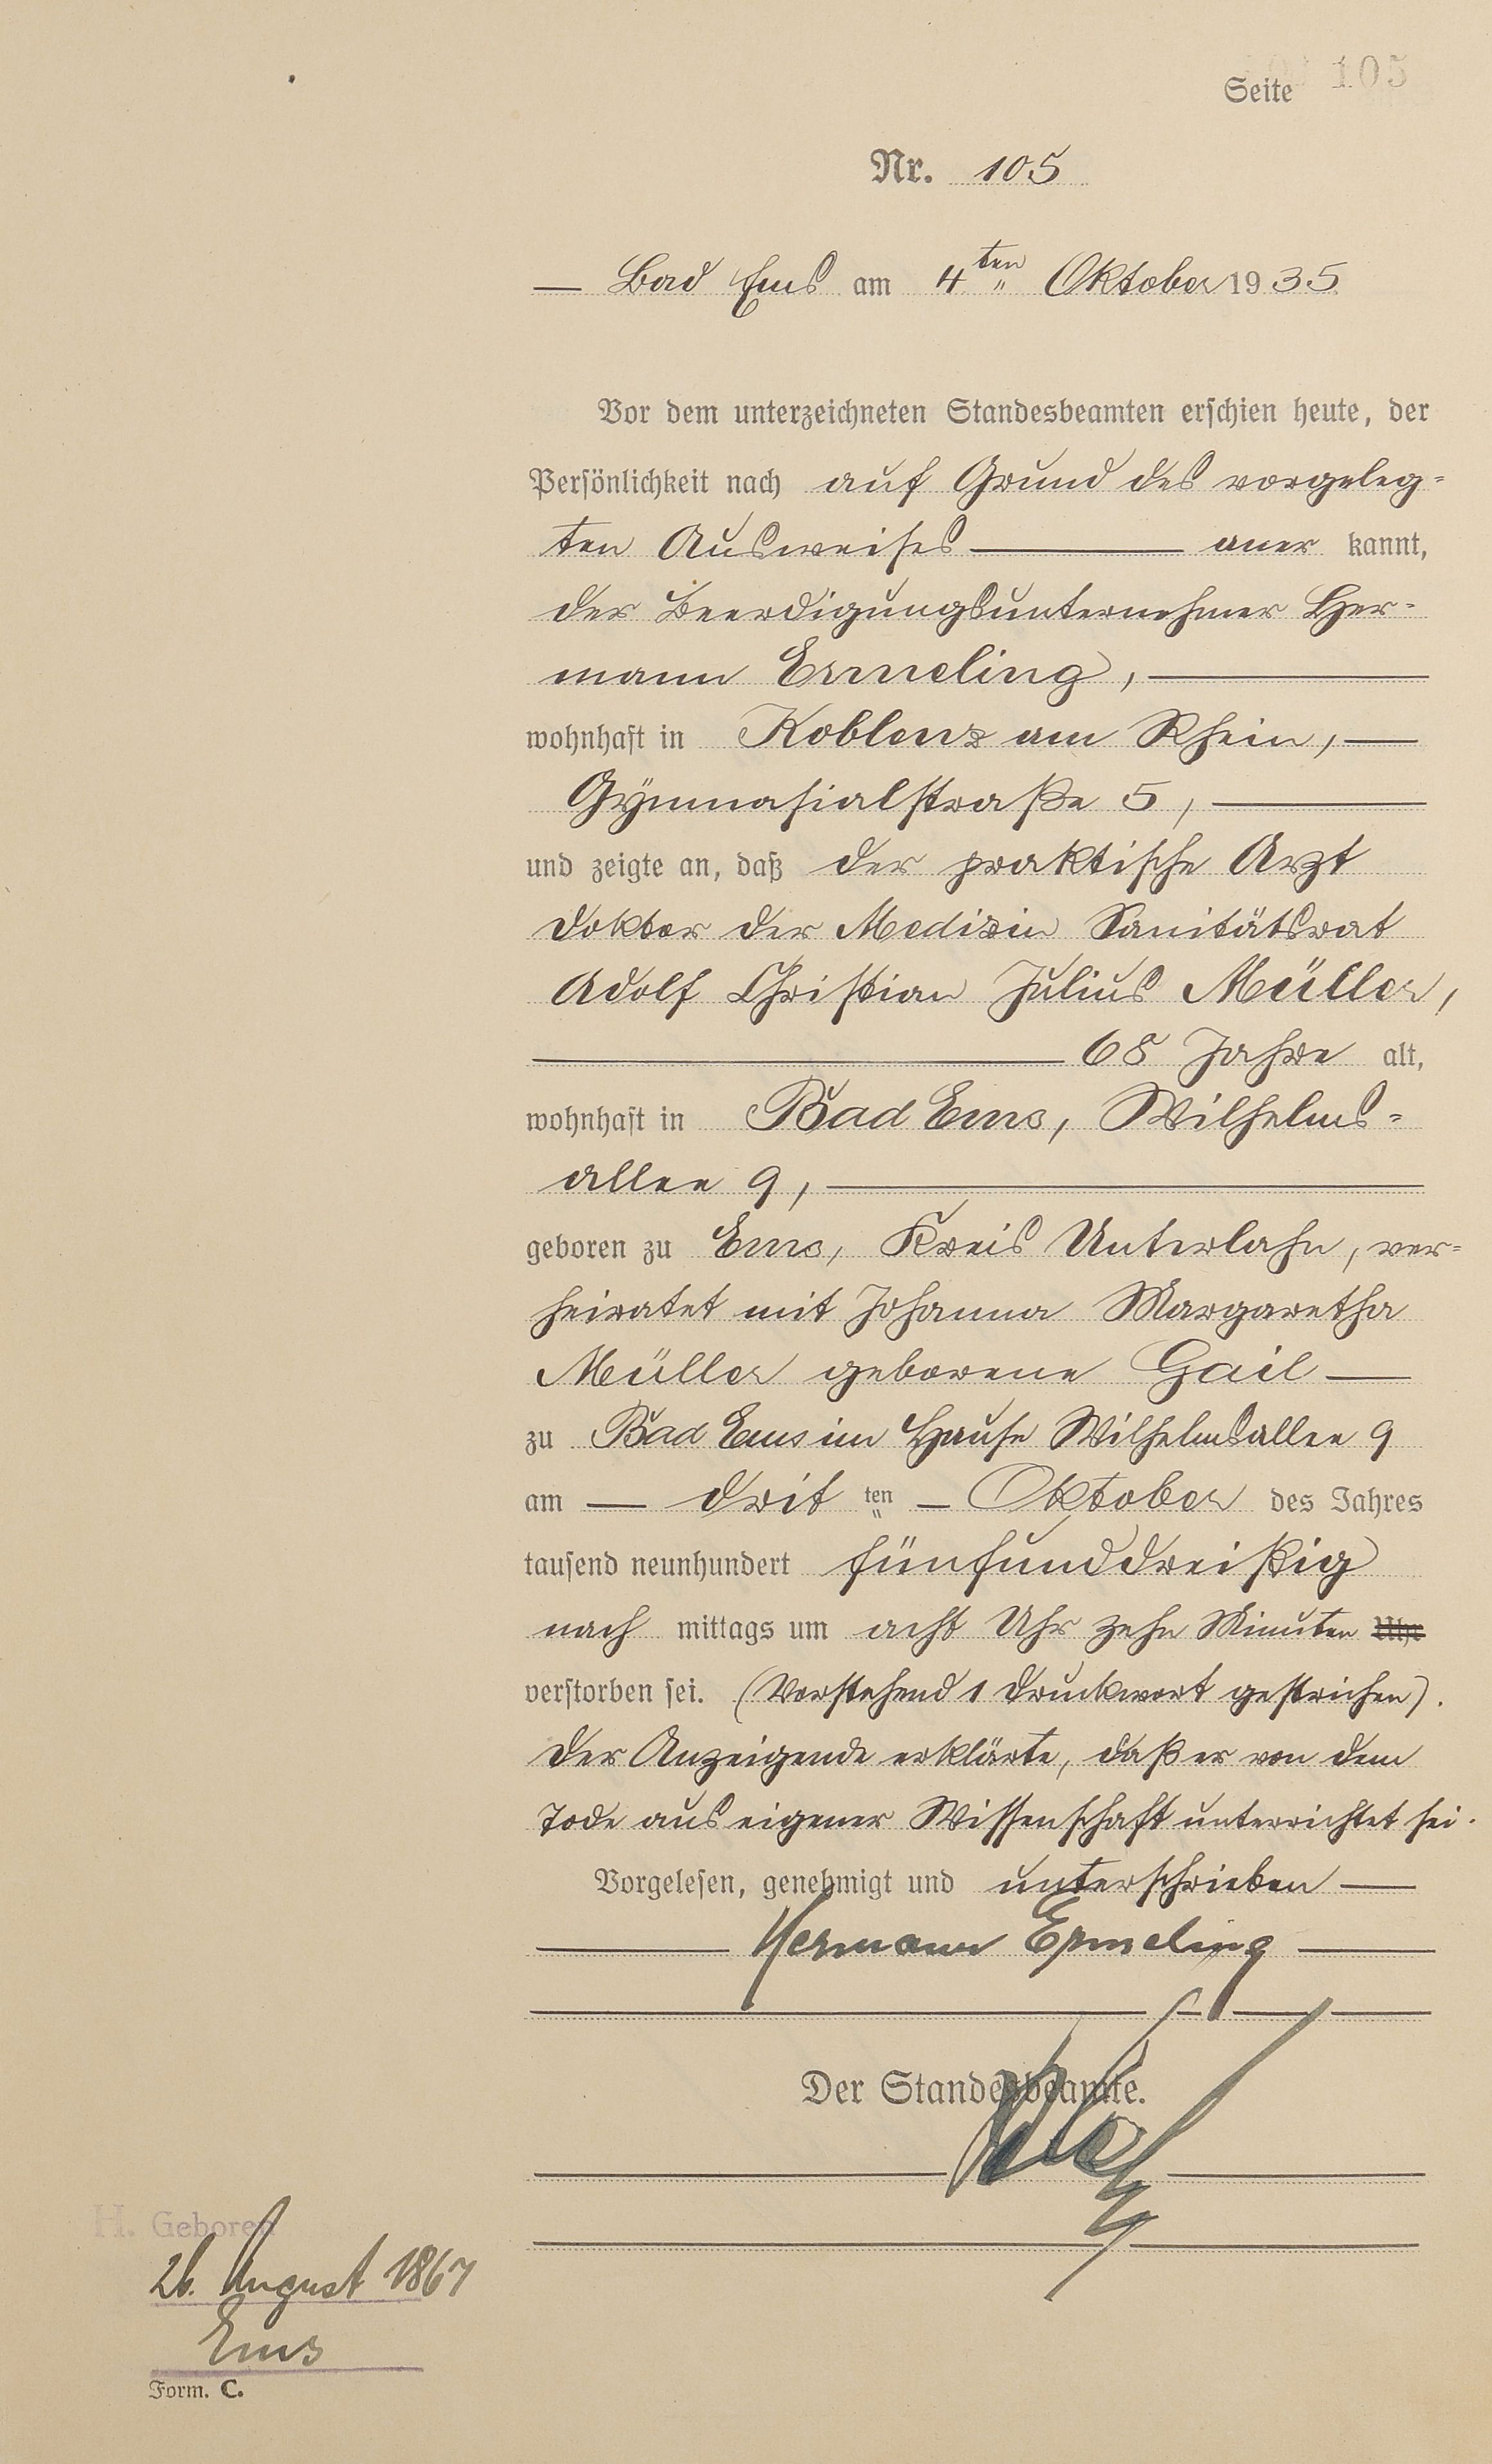 Seite 105
Nr. 105
Bad Ems am 4ten Oktober 1935
Vor dem unterzeichneten Standesbeamten erschien heute, der
Persönlichkeit nach auf Grund des vorgeleg=
ten Ausweises aner kannt,
der Beerdigungsunternehmer Her=
mann Ermeling,
wohnhaft in Koblenz am Rhein,
Gymnasialstraße 5,
und zeigte an, daß der praktische Arzt
Doktor der Medizin Sanitätsrat
Adolf Christian Julius Müller,
68 Jahre alt,
wohnhaft in Bad Ems, Wilhelms=
allee 9,
geboren zu Ems, Kreis Unterlahn, ver=
heiratet mit Johanna Margaretha
Müller geborene Gail
zu Bad Ems im Hause Wilhelmsallee 9
am drit ten Oktober des Jahres
tausend neunhundert fünfunddreißig
nach mittags um acht Uhr zehn Minuten Uhr
verstorben sei. (Vorstehend 1 Druckwort gestrichen).
Der Anzeigende erklärte, daß er von dem
Tode aus eigener Wissenschaft unterrichtet sei.
Vorgelesen, genehmigt und unterschrieben
Hermann Ermeling
Der Standesbeamte.
H. Geboren
26. August 1867
Ems
Form. C.